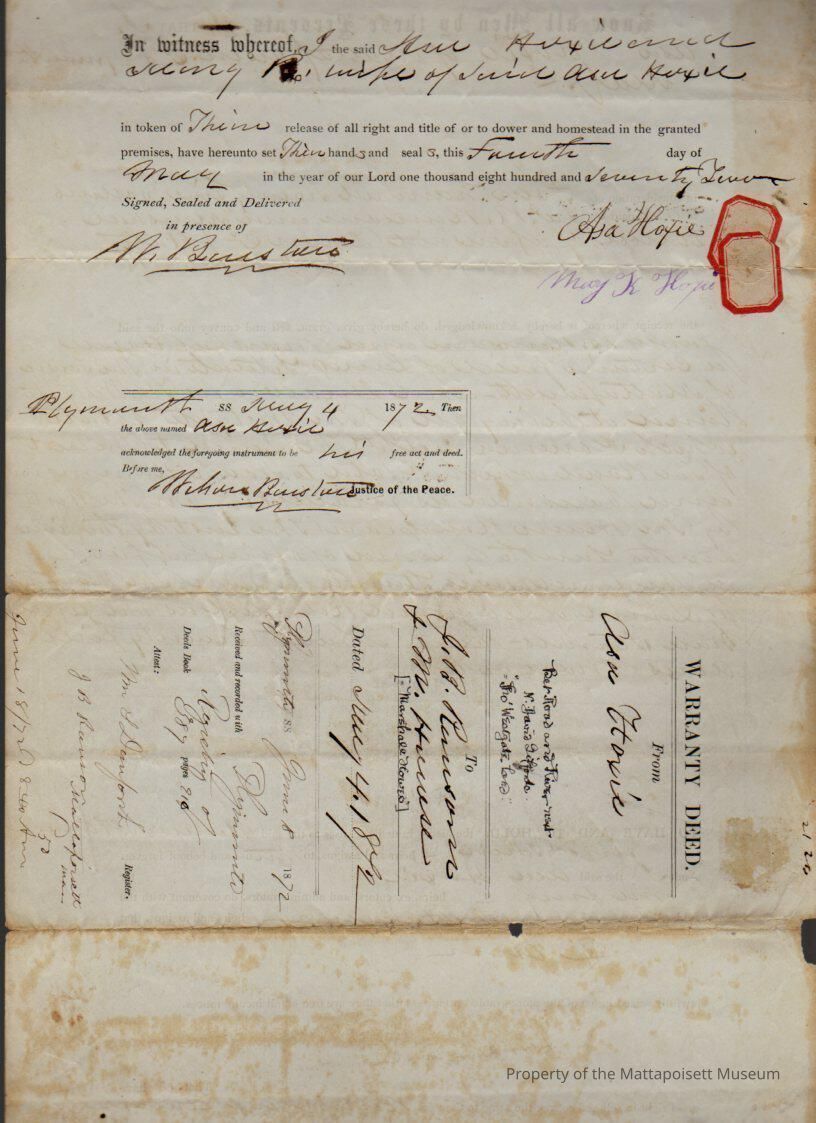 In witness whereof, I the said Asa Hoxie and
Mary K. wife of said Asa Hoxie
in token of Their release of all right and title of or to dower and homestead in the granted
premises, have hereunto set Their hands and seals, this Fourth day of
May in the year of our Lord one thousand eight hundred and seventy Two
Signed, Sealed and Delivered
in presence of
Asa Hoxie
W. Barstow
Mary K Hoxie
Plymouth ss May 4 1872 Then
the above named Asa Hoxie
acknowledged the foregoing instrument to be his free act and deed.
Before me,
Wilson Barstow Justice of the Peace.
WARRANTY DEED.
From
Asa Hoxie
Bet Road and River
N. David
Westgate Land
To
J. B. Ransom
& M. House
[Marshall Howes]
Dated May 4. 1872
Plymouth ss June 8 1872
Received and recorded with
Registry of Plymouth
Deeds Book pages
Attest:
Wm S Danforth Register.
J B Ransom Mattapoisett
Mass
50
June 1872
Property of the Mattapoisett Museum